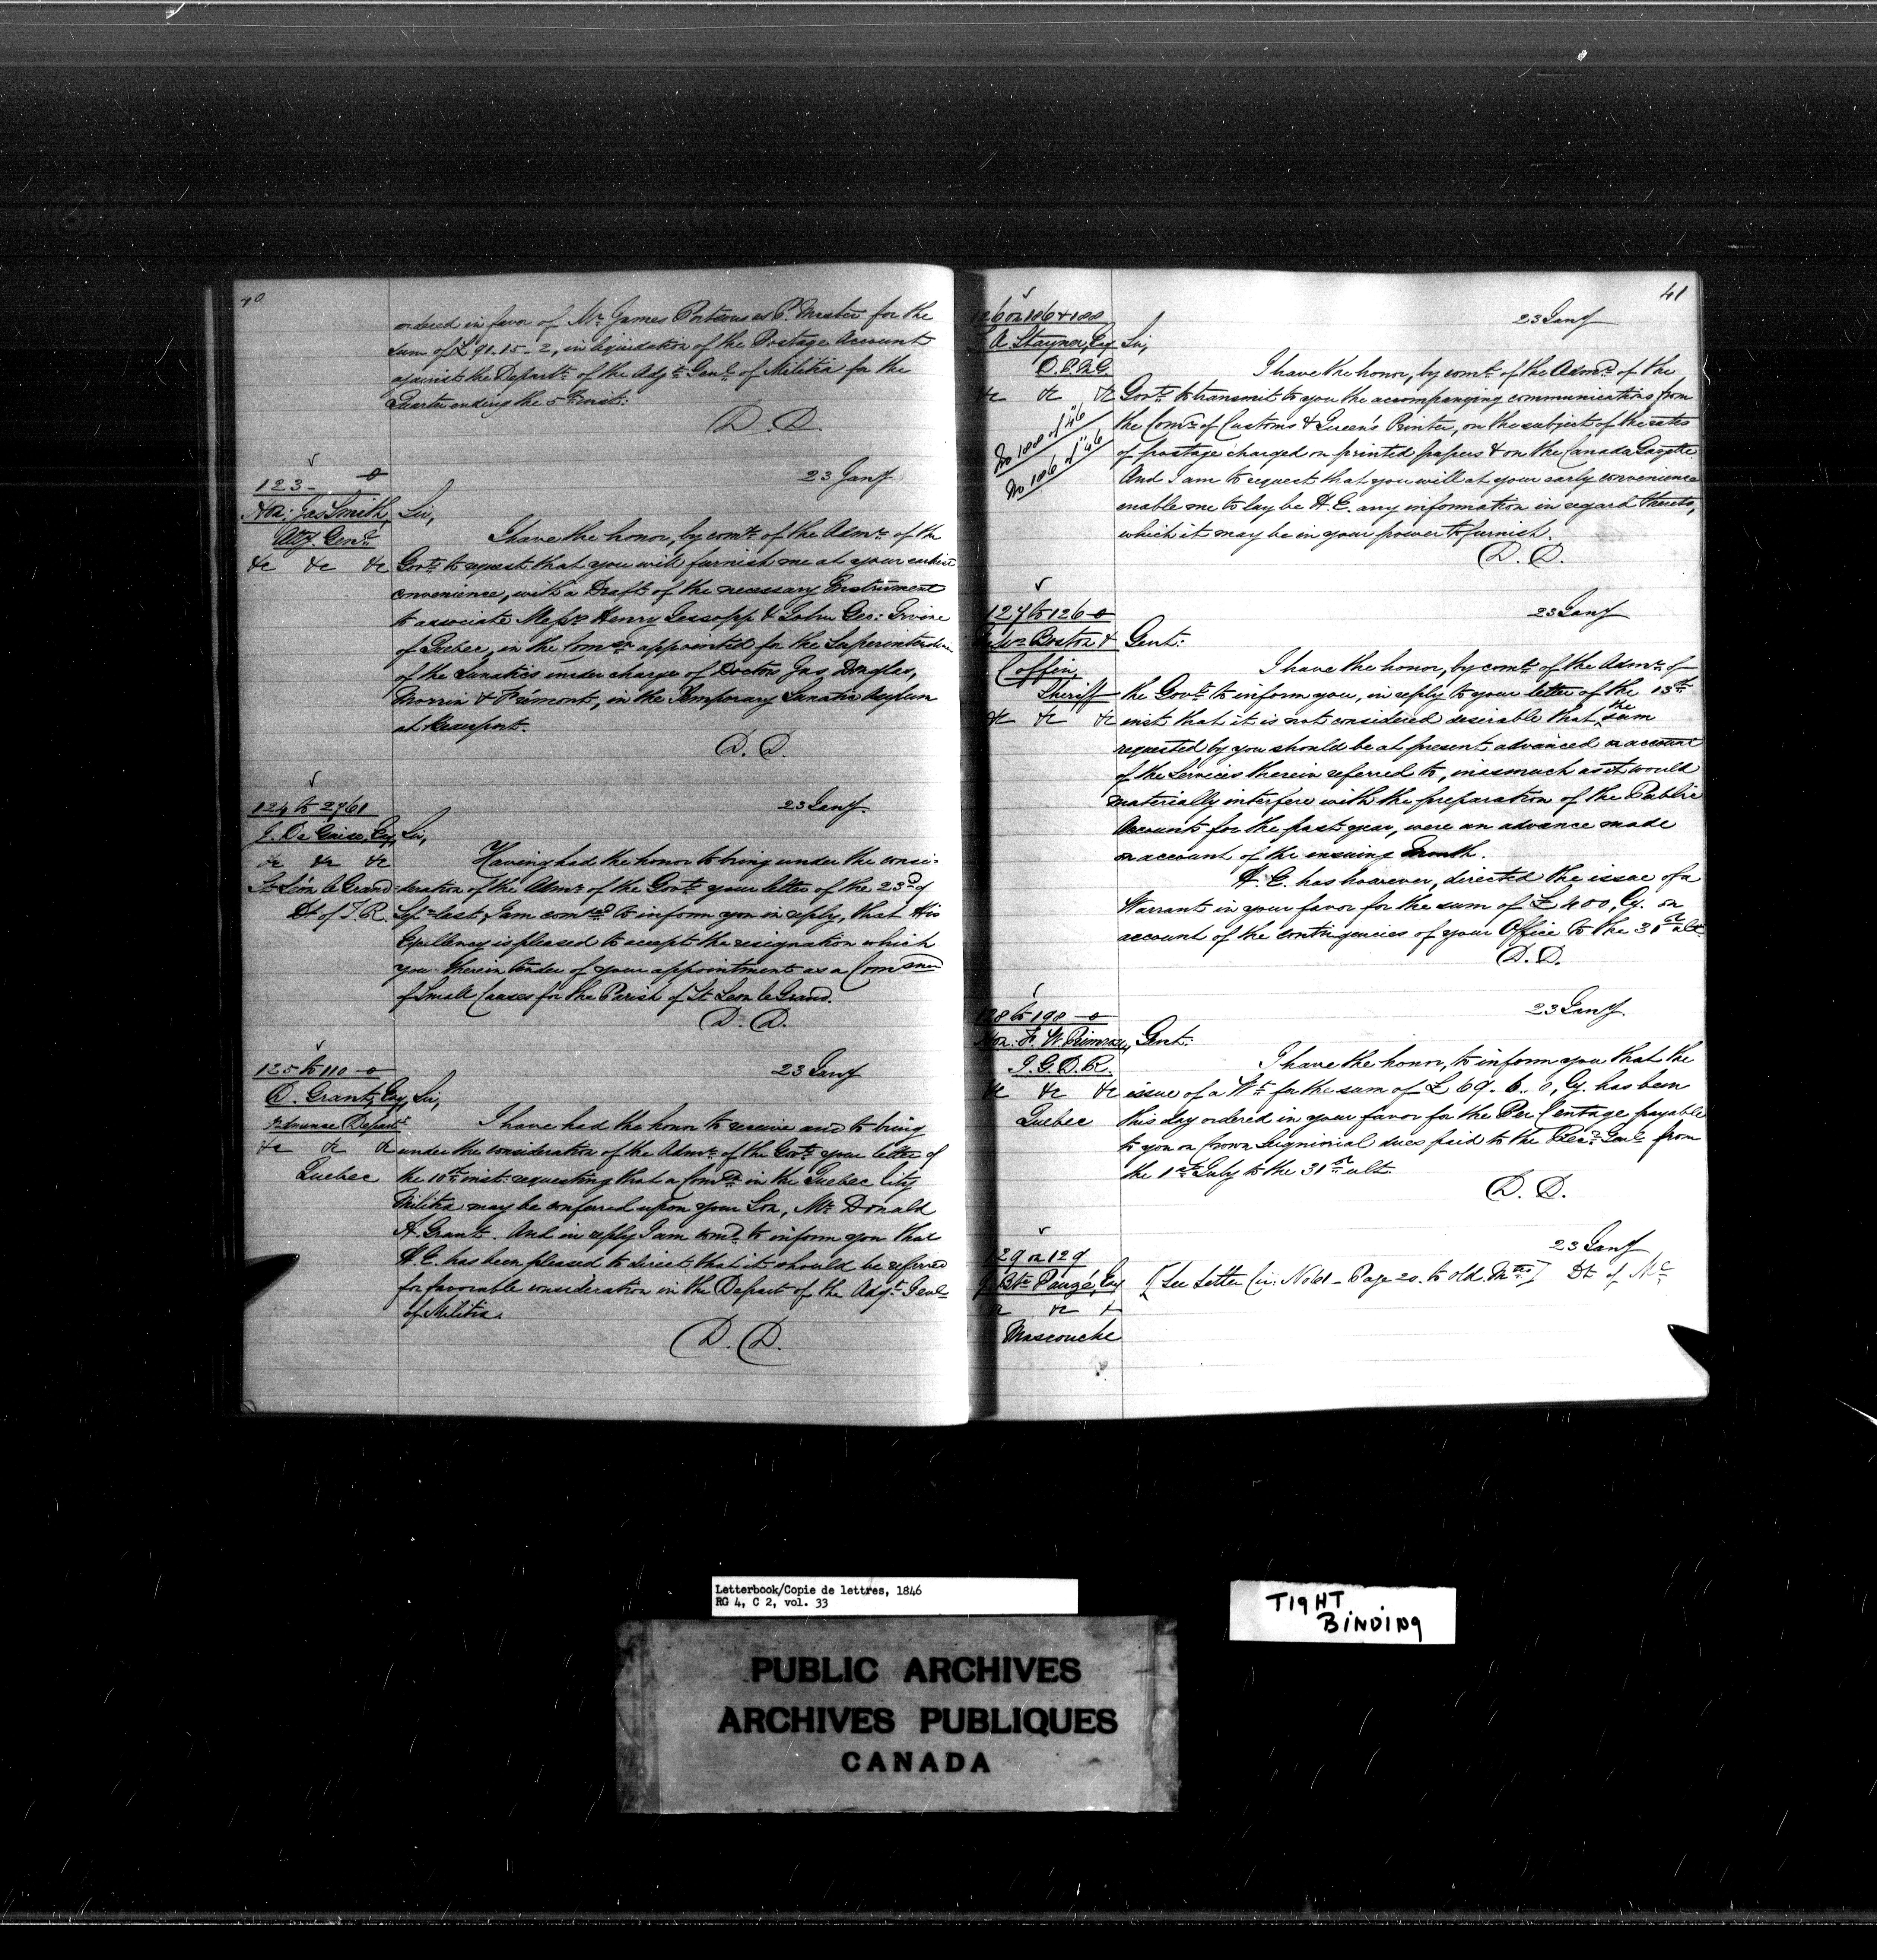 40
ordered in favor of Mr. James Porteous as P. Master for the
sum of £91.15.2, in liquidation of the Postage Account
against the Departt. of the Adjt. Genl. of Militia for the
Quarter ending the 5th inst:
D. D.
123 -
23 Jany
Hon: Jas Smith, Sir,
Atty. Genl.
I have the honor, by comd. of the Admr. of the
&c &c &c Govt. to request that you will furnish me at your earliest
convenience, with a Draft of the necessary Instrument
to associate Messrs. Henry Jessopp & John Geo: Irvine
of Quebec, in the Commn. appointed for the Superintendence
of the Lunatics under charge of Doctors Jas Douglas,
Morrin & Frémont, in the Temporary Lunatic Asylum
at Beauport.
D. D.
124 to 2761
23 Jany.
Esq, Sir,
&c &c &c Having had the honor to bring under the consi-
St. Léon le Grand deration of the Admr. of the Govt. your letter of the 23d of
Dt of T. R. Sepr. last, I am comd. to inform you in reply, that His
Excellency is pleased to accept the resignation which
you therein tender of your appointment as a Commr.
of Small Causes for the Parish of St. Leon le Grand.
D. D.
125 to 110
23 Jany
D. Grant, Esq, Sir,
Ordnance Depart.
I have had the honor to receive and to bring
&c &c &c under the consideration of the Admr. of the Govt. your letter of
Quebec the 10th inst: requesting that a Comn. in the Quebec City
Militia may be conferred upon your Son, Mr. Donald
A. Grant. And in reply I am comd. to inform you that
H. E. has been pleased to direct that it should be referred
for favorable consideration in the Depart. of the Adjt. Genl.
of Militia.
D. D.
41
126 on 186 & 188
23 Jany
T. A. Stayner, Esq Sir,
D. P. M. G.
I have the honor, by comd. of the Admr. of the
&c &c &c Govt. to transmit to you the accompanying communications from
No 188 of "46
No 186 of "46
the Comr. of Customs & Queen's Printer, on the subject of the rates
of postage charged on printed papers & on the Canada Gazette
And I am to request that you will at your early convenience
enable me to lay be H. E. any information in regard thereto,
which it may be in your power to furnish.
D. D.
127 to 126
23 Jany
Boston & Gent:
Coffin,
Sheriff
I have the honor, by comd. of the Admr. of
the Govt. to inform you, in reply to your letter of the 13th
&c &c &c inst that it is not considered desirable that the sum
requested by you should be at present advanced on account
of the Services therein referred to, inasmuch as it would
materially interfere with the preparation of the Public
Accounts for the past year, were an advance made
on account of the ensuing month.
H. E. has however, directed the issue of a
Warrant in your favor for the sum of £400, Cy. on
account of the contingencies of your Office to the 31st ult.
D. D.
128 to 198
23 Jany.
Hon. F. W. Primrose, Gent:
I. G. D. R.
I have the honor, to inform you that the
&c &c &c issue of a Wt. for the sum of £69. 6. 0, Cy. has been
Quebec this day ordered in your favor for the Per Centage payable
to you on Crown Seignorial dues paid to the Recr. Genl. from
the 1st July to the 31st ult.
D. D.
129 on 129
23 Jany
J. Bte Pauzé, Esq [See Letter Cir: No 61 - Page 20. to old Mrs.] Dt of Ml
&c &c &c
Mascouche
Letterbook/Copie de lettres, 1846
RG 4, C 2, vol. 33
TIGHT
BINDING
PUBLIC ARCHIVES
ARCHIVES PUBLIQUES
CANADA